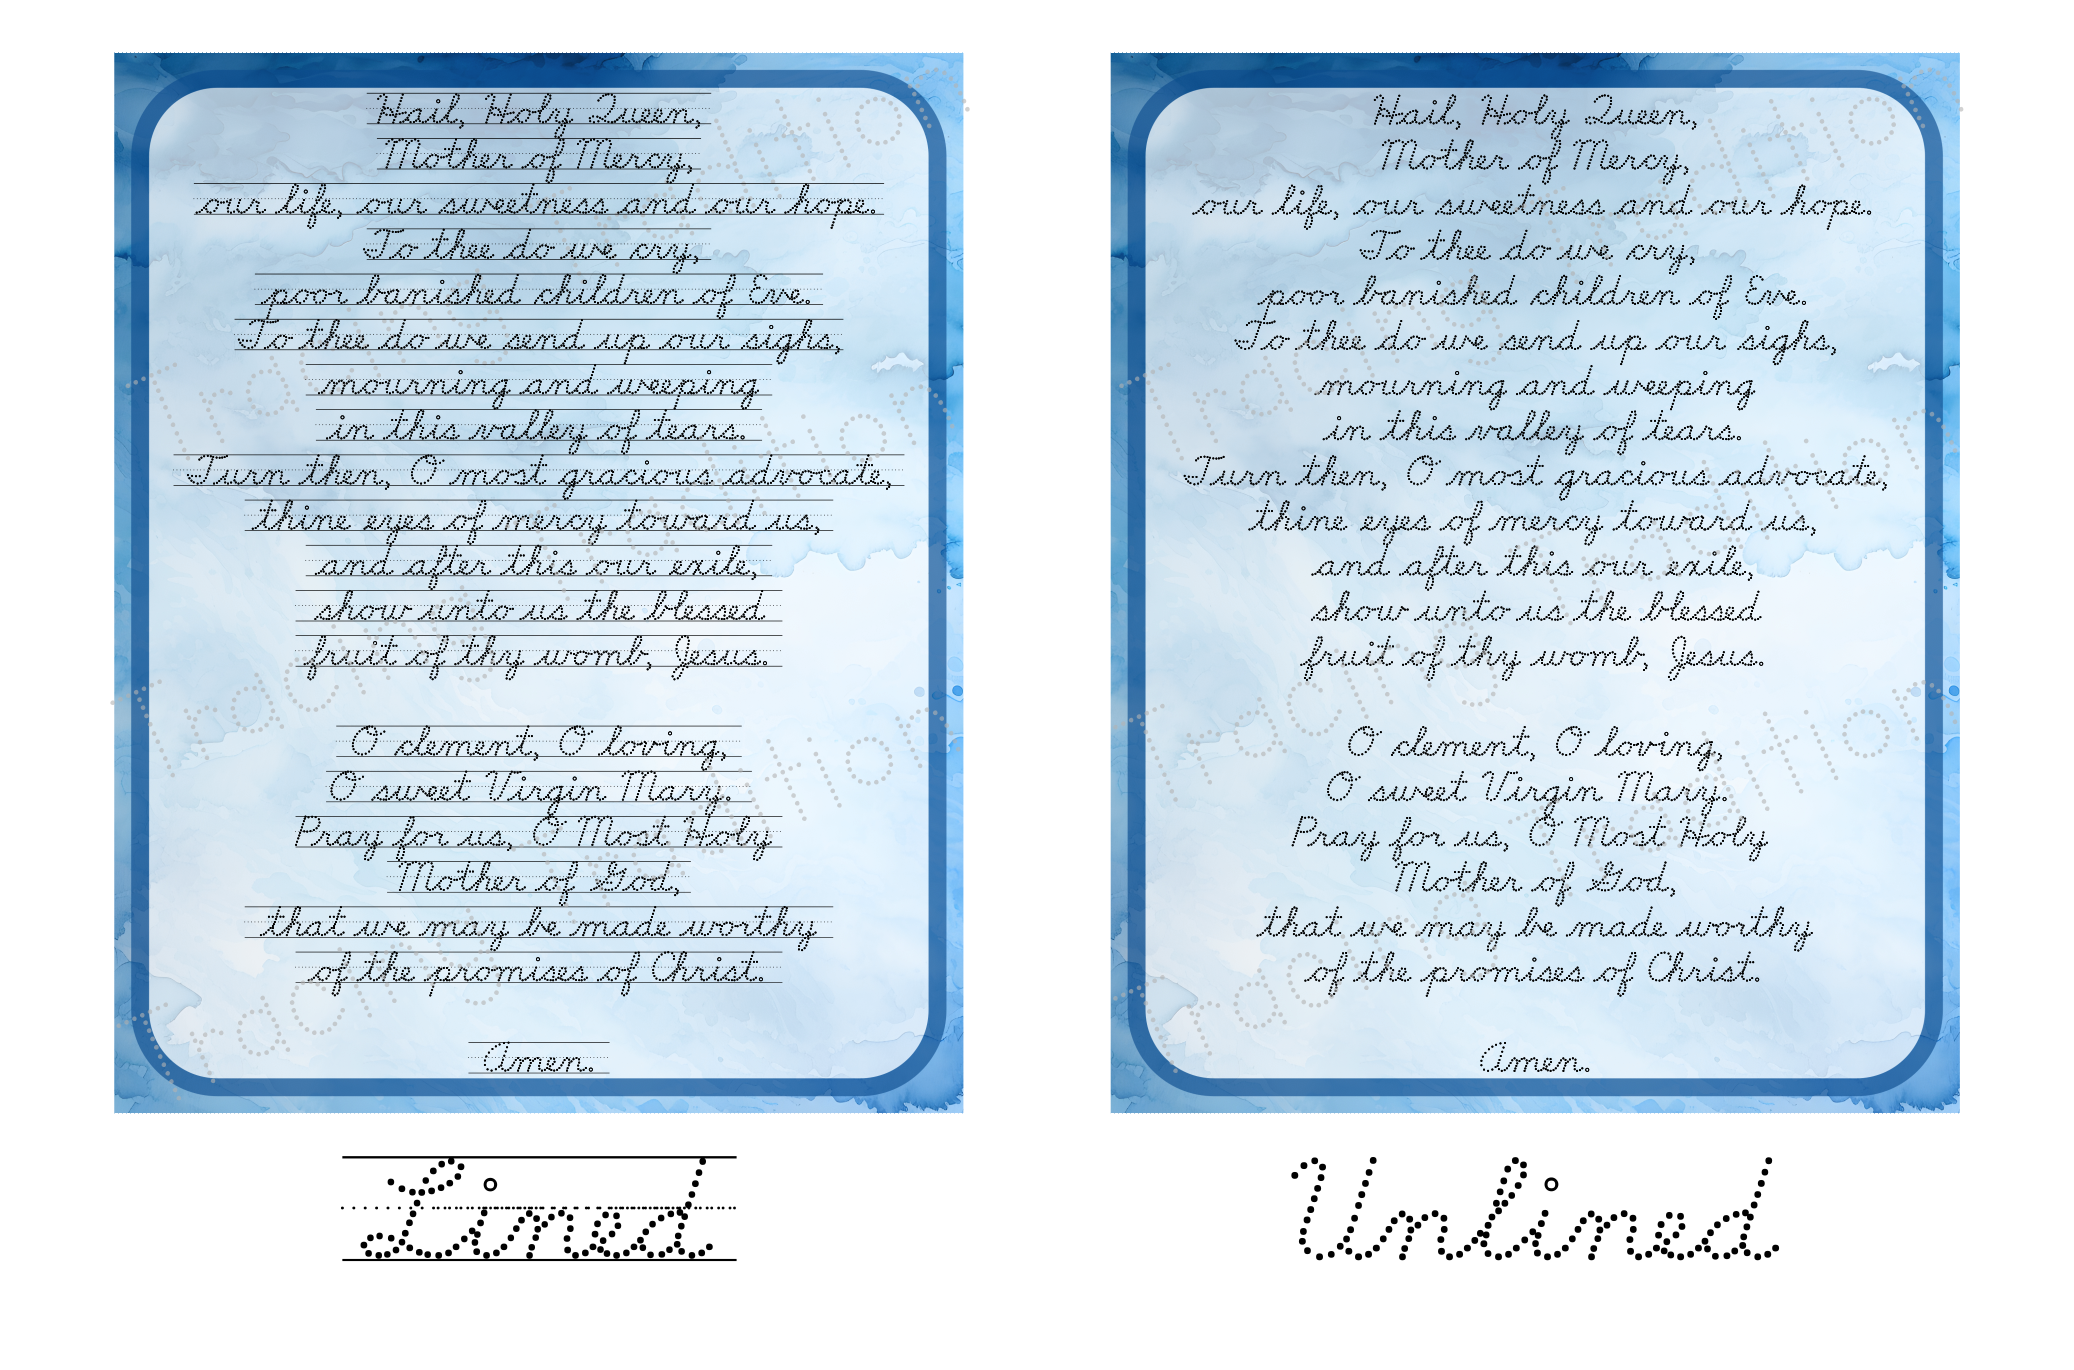 Hail, Holy Queen,
Mother of Mercy,
our life, our sweetness and our hope.
To thee do we cry,
poor banished children of Eve.
To thee do we send up our sighs,
mourning and weeping
in this valley of tears.
Turn then, O most gracious advocate,
thine eyes of mercy toward us,
and after this our exile,
show unto us the blessed
fruit of thy womb, Jesus.
O clement, O loving,
O sweet Virgin Mary.
Pray for us, O Most Holy
Mother of God,
that we may be made worthy
of the promises of Christ.
Amen.
Lined
Hail, Holy Queen,
Mother of Mercy,
our life, our sweetness and our hope.
To thee do we cry,
poor banished children of Eve.
To thee do we send up our sighs,
mourning and weeping
in this valley of tears.
Turn then, O most gracious advocate,
thine eyes of mercy toward us,
and after this our exile,
show unto us the blessed
fruit of thy womb, Jesus.
O clement, O loving,
O sweet Virgin Mary.
Pray for us, O Most Holy
Mother of God,
that we may be made worthy
of the promises of Christ.
Amen.
Unlined